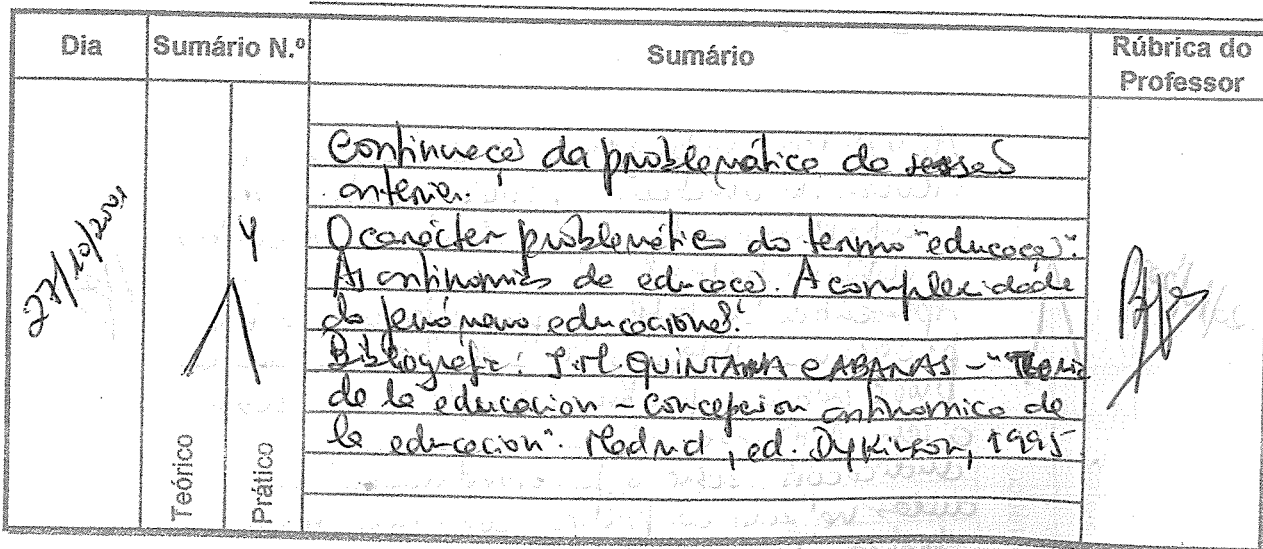 Dia Sumário N.º Sumário Rúbrica do Professor
27/10/2001
4
Teórico
Prático
Continuação da problemática da sessão
anterior.
O carácter problemático do termo "educação".
As antinomias da educação. A complexidade
do fenómeno educacional.
Bibliografia: J.M. QUINTANA CABANAS - "Teoria
de la educacion - Concepcion antinomica de
la educacion". Madrid, ed. Dykinson, 1995.